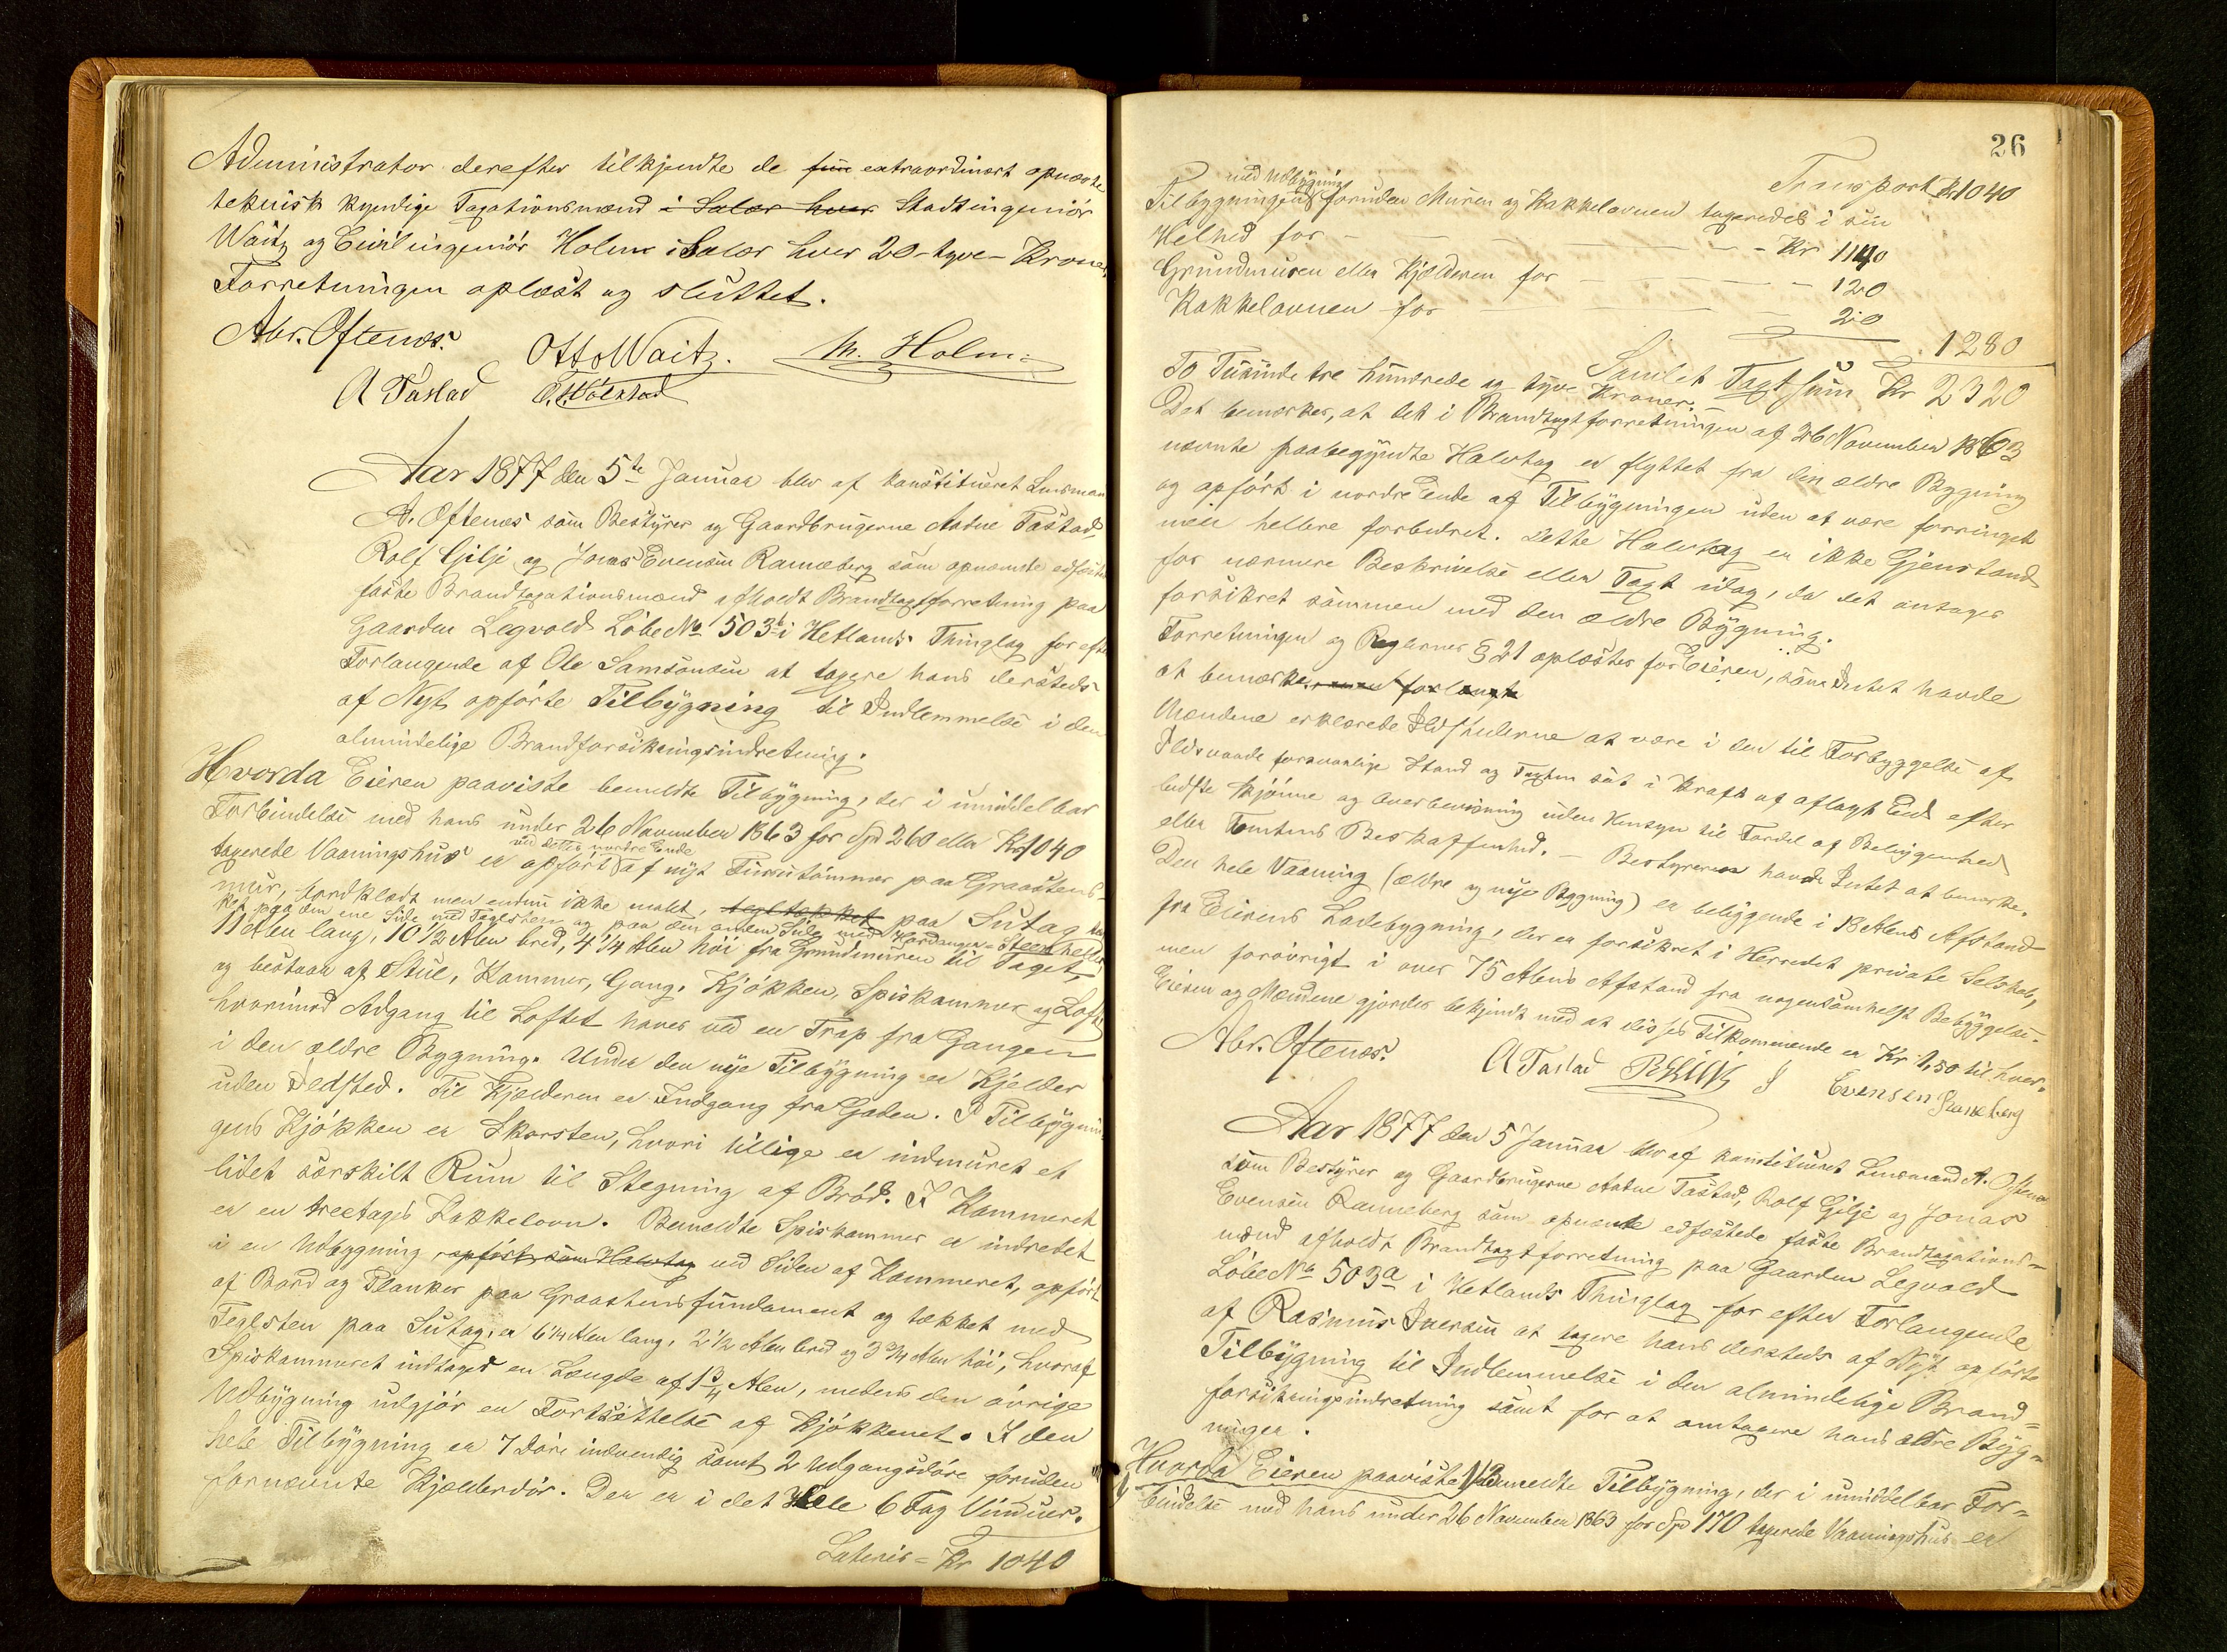 Administrator derefter tilkjendte de fun extraordinært opnævnte
teknisk kyndige Taxationsmænd i Salær hver Stadsingeniör
Waitz og Civilingeniör Holm i Salær hver 20 - tyve - Kroner.
Forretningen oplæst og sluttet.
Abr. Oftenæs. Otto Waitz. M. Holm.
A Tastad
Aar 1877 den 5te Januar blev af konstitueret Lensmand
A. Oftenæs som Bestyrer og Gaardbrugerne Aadne Tastad,
Rolf Gilje og Jonas Evensen Ranneberg som opnævnte edfæstede
faste Brandtaxationsmænd afholdt Brandtaxtforretning paa
Gaarden Legvold Löbe No 503b i Hetlands Thinglag for efter
Forlangende af Ole Samsonsen at taxere hans dersteds
af Nyt opförte Tilbygning til Indlemmelse i den
almindelige Brandforsikringsindretning.
Hvorda Eieren paaviste bemeldte Tilbygning, der i umiddelbar
Forbindelse med hans under 26 November 1863 for Spd 260 eller Kr 1040
taxerede Vaaningshus er opfört ved dettes nordre Ende af nyt Furutömmer paa Graastens-
mur, bordklædt men endnu ikke malet, tegltækket paa Sutag tæk-
ket paa den ene Side med Teglsten og paa den anden Side med Hardanger-Steenheller
11 Alen lang, 10 1/2 Alen bred, 4 1/4 Alen höi fra Grundmuren til Taget,
og bestaar af Stue, Kammer, Gang, Kjökken, Spiskammer og Loft
hvorimod Adgang til Loftet haves ved en Trap fra Gangen
i den ældre Bygning. Under den nye Tilbygning er Kjelder
uden Ildsted. Til Kjælderen er Indgang fra Gaden. I Tilbygnin-
gens Kjökken er Skorsten, hvori tillige er indmuret et
lidet særskilt Rum til Stegning af Bröd. I Kammeret
er en treetages Kakkelovn. Bemeldte Spiskammer er indredet
i en Udbygning opfört som Halvtag ved Siden af Kammeret, opfört
af Bord og Planker paa Graastensfundament og tækket med
Teglsten paa Sutag, er 6 1/4 Alen lang, 2 1/2 Alen bred og 3 3/4 Alen höi, hvoraf
Spiskammeret indtager en Længde af 1 3/4 Alen, medens den övrige
Udbygning udgjör en Fortsættelse af Kjökkenet. I den
hele Tilbygning er 7 Döre indvendig samt 2 Udgangsdöre foruden
fornævnte Kjælderdör. Der er i det Hele 6 Fag Vinduer.
Lateris = Kr 1040
26
Transport Kr 1040
Tilbygningen med Udbygning foruden Muren og Kakkelovnen taxeredes i sin
Helhed for - Kr 1140
Grundmuren eller Kjælderen for - 120
Kakkelovnen for - 20
1280
Samlet Taxtsum Kr 2320
To Tusinde tre hundrede og tyve Kroner.
Det bemærkes, at det i Brandtaxtforretningen af 26 November 1863
nævnte paabegyndte Halvtag er flyttet fra den ældre Bygning
og opfört i nordre Ende af Tilbygningen uden at være forringet
men hellere forbedret. Dette Halvtag er ikke Gjenstand
for nærmere Beskrivelse eller Taxt idag, da det antages
forsikret sammen med den ældre Bygning.
Forretningen og Reglernes § 21 oplæstes for Eieren, som Intet havde
at bemærke
Mændene erklærede Ildstederne at være i den til Forbyggelse af
Ildsvaade forsvarlige Stand og Taxten sat i Kraft af aflagt Eed efter
bedste Skjönne og Overbevisning uden Hensyn til Fordel af Beliggenhed
eller Tomtens Beskaffenhed. - Bestyreren havde Intet at bemærke.
Den hele Vaaning (ældre og nye Bygning) er beliggende i 18 Alens Afstand
fra Eierens Ladebygning, der er forsikret i Herredet private Selskab,
men forövrigt i over 75 Alens Afstand fra nogensomhelst Bebyggelse.
Eieren og Mændene gjordes bekjendt med at disses Tilkommende er Kr 1,50 til hver.
Abr. Oftenæs. A Tastad J Evensen Ranneberg
Aar 1877 den 5 Januar blev af konstitueret Lensmand A. Oftenæs
som Bestyrer og Gaardbrugerne Aadne Tastad, Rolf Gilje og Jonas
Evensen Ranneberg som opnævnte edfæstede faste Brandtaxations-
mænd afholdt Brandtaxtforretning paa Gaarden Legvold
Löbe No 503a i Hetlands Thinglag for efter Forlangende
af Rasmus Iversen at taxere hans dersteds af Nyt opförte
Tilbygning til Indlemmelse i den almindelige Brand-
forsikringsindretning samt for at omtaxere hans ældre Byg-
ninger.
Hvorda Eieren paaviste bemeldte Tilbygning, der i umiddelbar For-
bindelse med hans under 26 November 1863 for Spd 170 taxerede Vaaningshus er